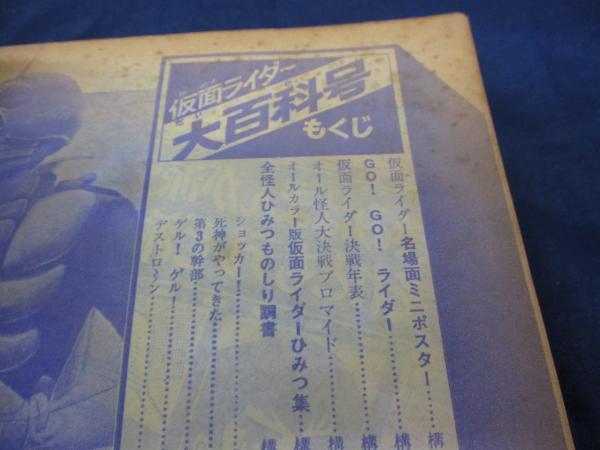 仮面ライダー
大百科号
もくじ
仮面ライダー名場面ミニポスター………構
GO! GO! ライダー………構
仮面ライダー決戦年表………構
オール怪人大決戦ブロマイド………構
オールカラー版仮面ライダーひみつ集…構
全怪人ひみつものしり調書………構
ショッカー!………
死神がやってきた………
第3の幹部………
ゲル! ゲル!………
デストロ〜ン………